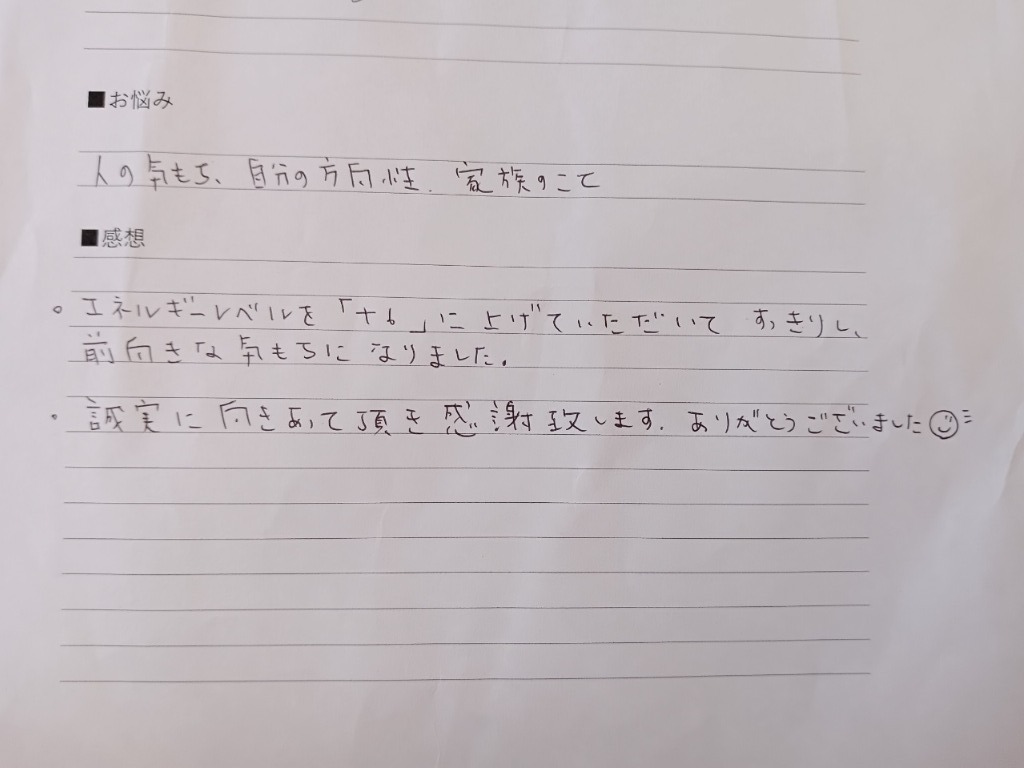 ■お悩み
人の気もち、自分の方向性、家族のこと
■感想
○ エネルギーレベルを「+6」に上げていただいて すっきりし、
前向きな気もちになりました。
○ 誠実に向きあって頂き感謝致します。ありがとうございました☺